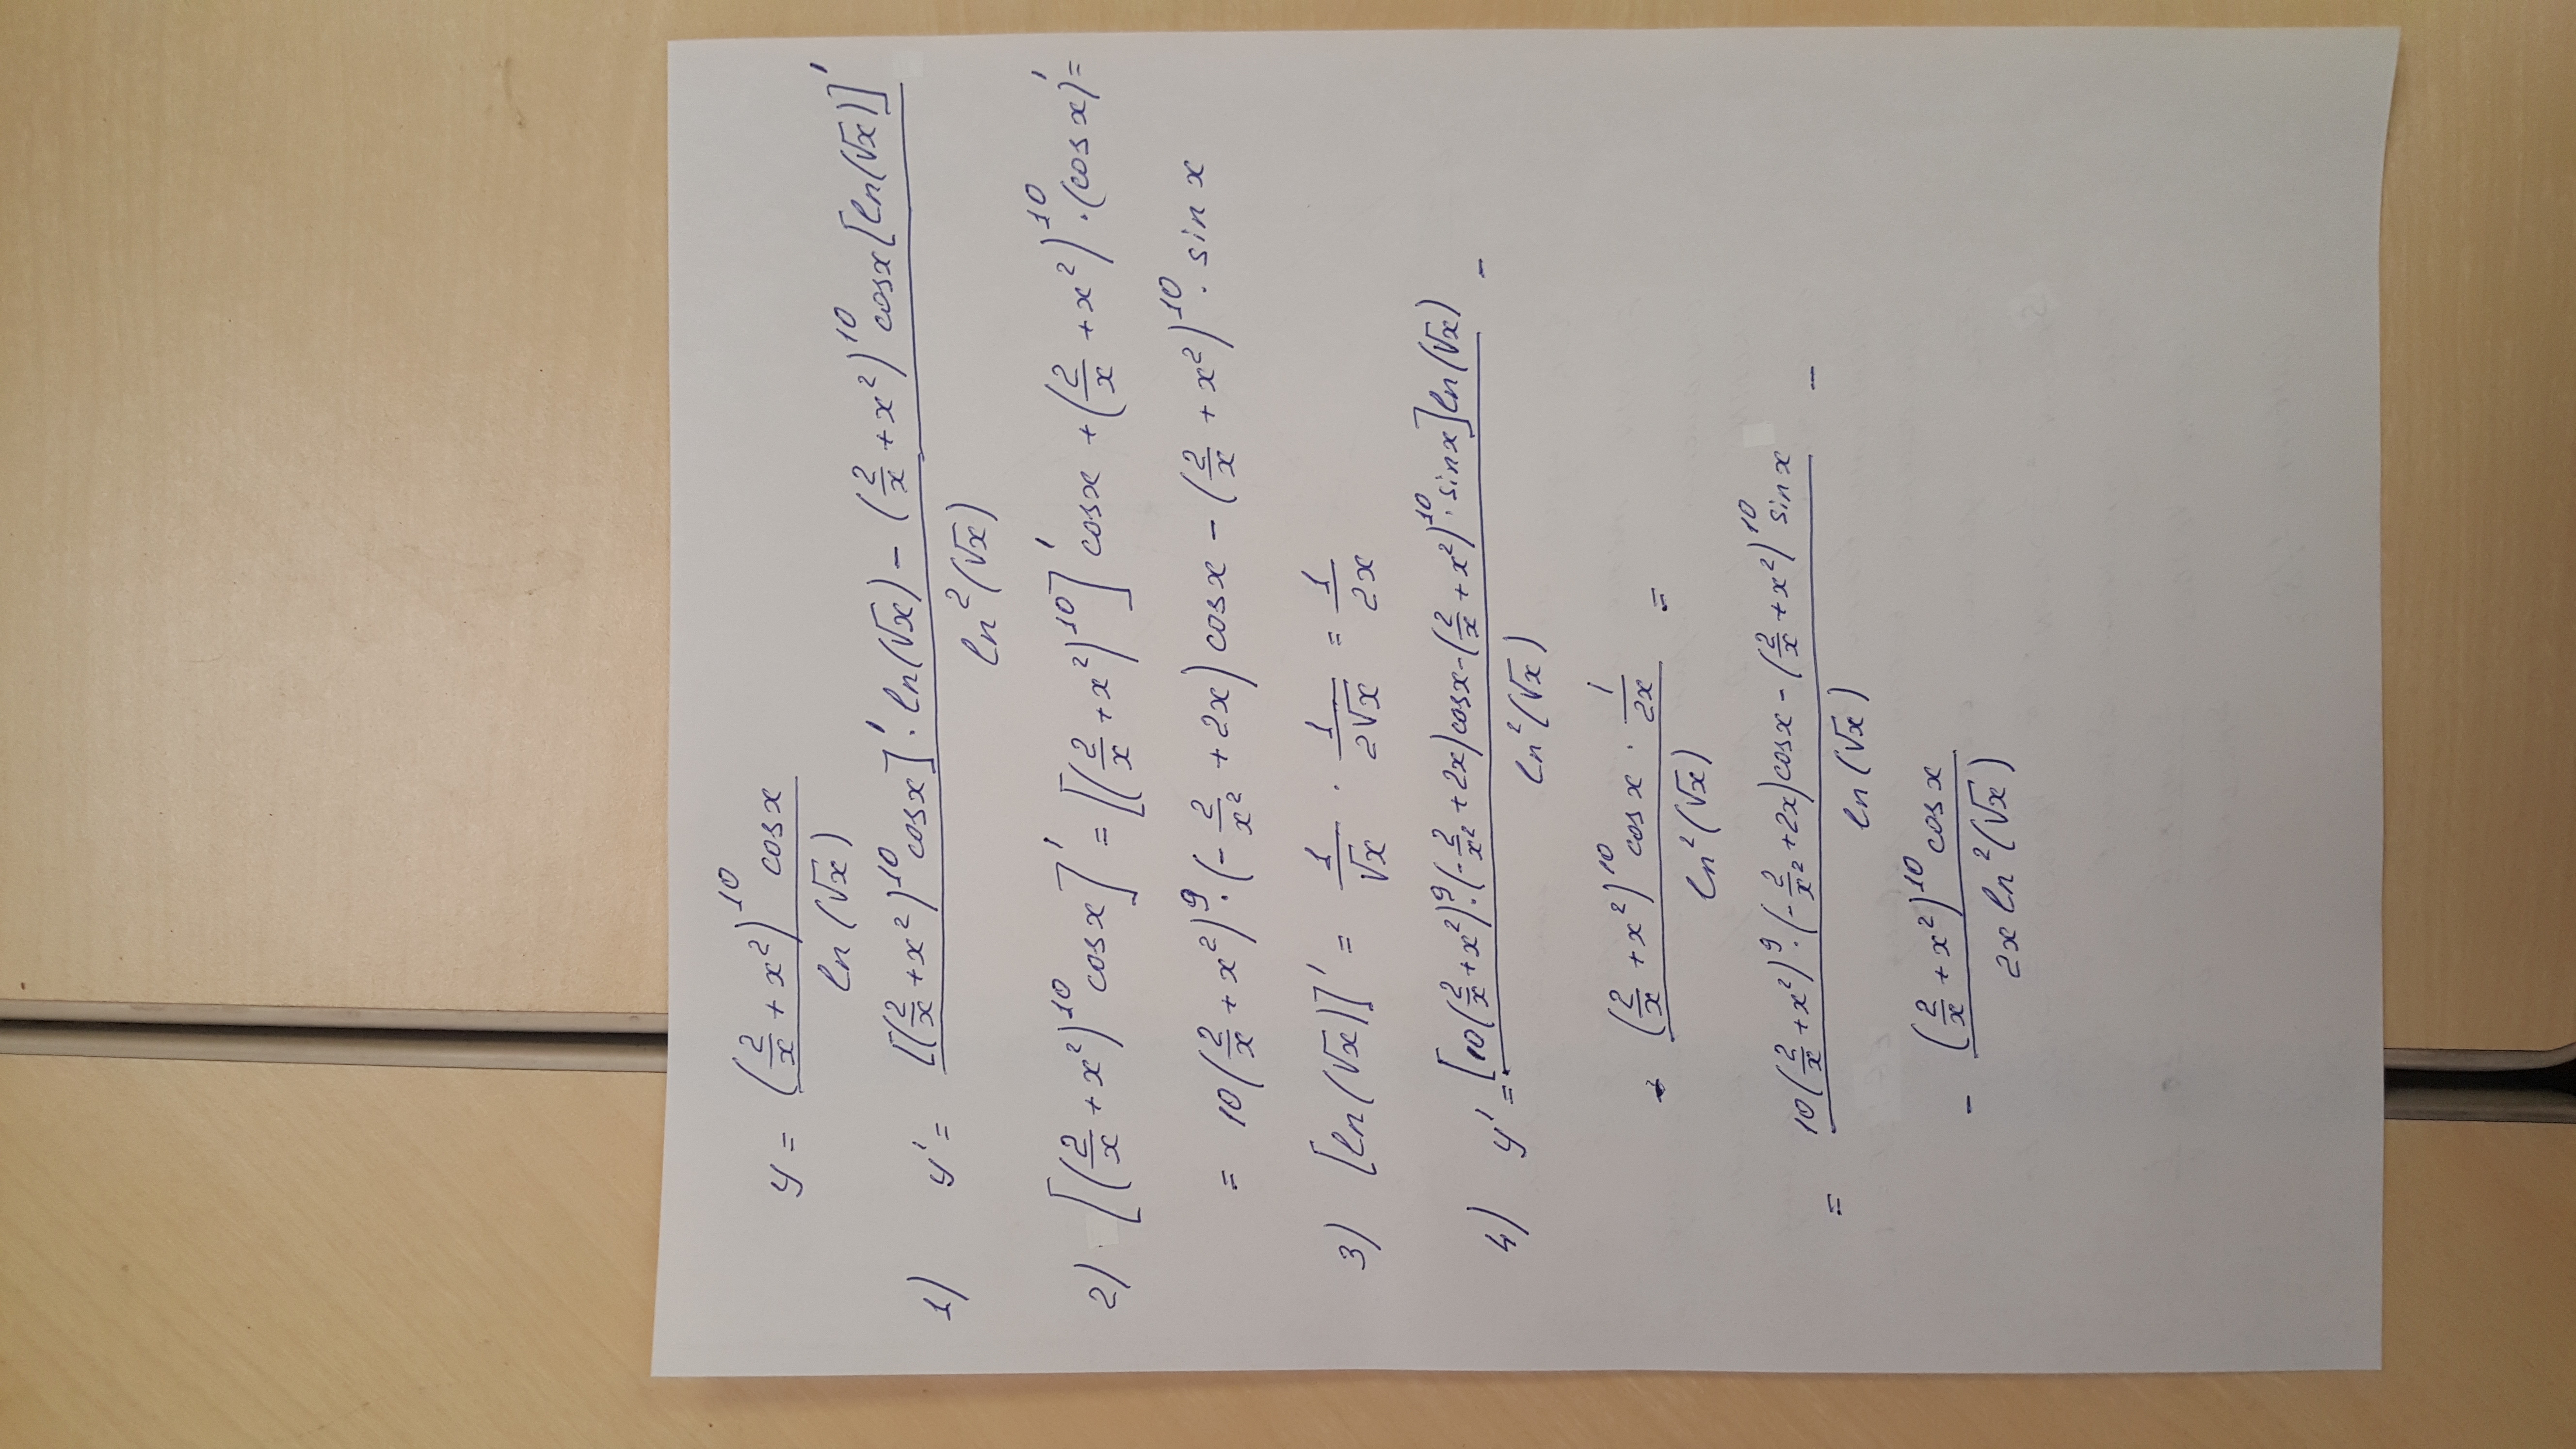 y = \frac{(\frac{2}{x} + x^2)^{10} cos x}{ln(\sqrt{x})}
1) y' = \frac{[(\frac{2}{x} + x^2)^{10} cos x]' \cdot ln(\sqrt{x}) - (\frac{2}{x} + x^2)^{10} cos x [ln(\sqrt{x})]'}{ln^2(\sqrt{x})}
2) [(\frac{2}{x} + x^2)^{10} cos x]' = [(\frac{2}{x} + x^2)^{10}]' cos x + (\frac{2}{x} + x^2)^{10} \cdot (cos x)' =
= 10(\frac{2}{x} + x^2)^9 \cdot (-\frac{2}{x^2} + 2x) cos x - (\frac{2}{x} + x^2)^{10} \cdot sin x
3) [ln(\sqrt{x})]' = \frac{1}{\sqrt{x}} \cdot \frac{1}{2\sqrt{x}} = \frac{1}{2x}
4) y' = \frac{[10(\frac{2}{x} + x^2)^9 \cdot (-\frac{2}{x^2} + 2x) cos x - (\frac{2}{x} + x^2)^{10} \cdot sin x] ln(\sqrt{x})}{ln^2(\sqrt{x})} -
\frac{(\frac{2}{x} + x^2)^{10} cos x \cdot \frac{1}{2x}}{ln^2(\sqrt{x})} =
= \frac{10(\frac{2}{x} + x^2)^9 \cdot (-\frac{2}{x^2} + 2x) cos x - (\frac{2}{x} + x^2)^{10} sin x}{ln(\sqrt{x})} -
- \frac{(\frac{2}{x} + x^2)^{10} cos x}{2x ln^2(\sqrt{x})}